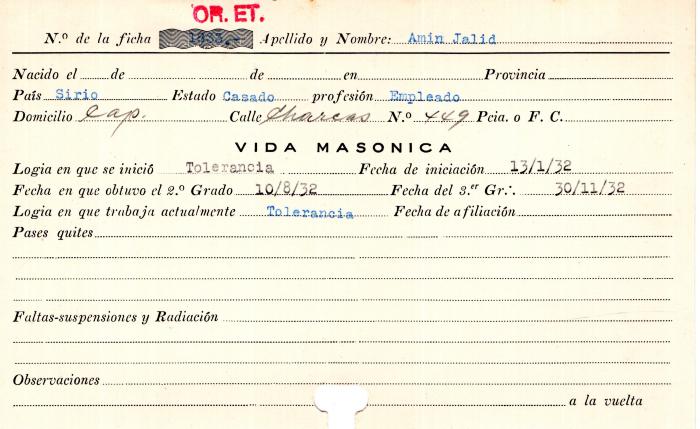 OR. ET.
N.º de la ficha Apellido y Nombre: Amin Jalid
Nacido el de de en Provincia
País Sirio Estado Casado profesión Empleado
Domicilio Cap. Calle Charcas N.º 449 Pcia. o F. C.
VIDA MASONICA
Logia en que se inició Tolerancia Fecha de iniciación 13/1/32
Fecha en que obtuvo el 2.º Grado 10/8/32 Fecha del 3.er Gr∴ 30/11/32
Logia en que trabaja actualmente Tolerancia Fecha de afiliación
Pases quites
Faltas-suspensiones y Radiación
Observaciones
a la vuelta